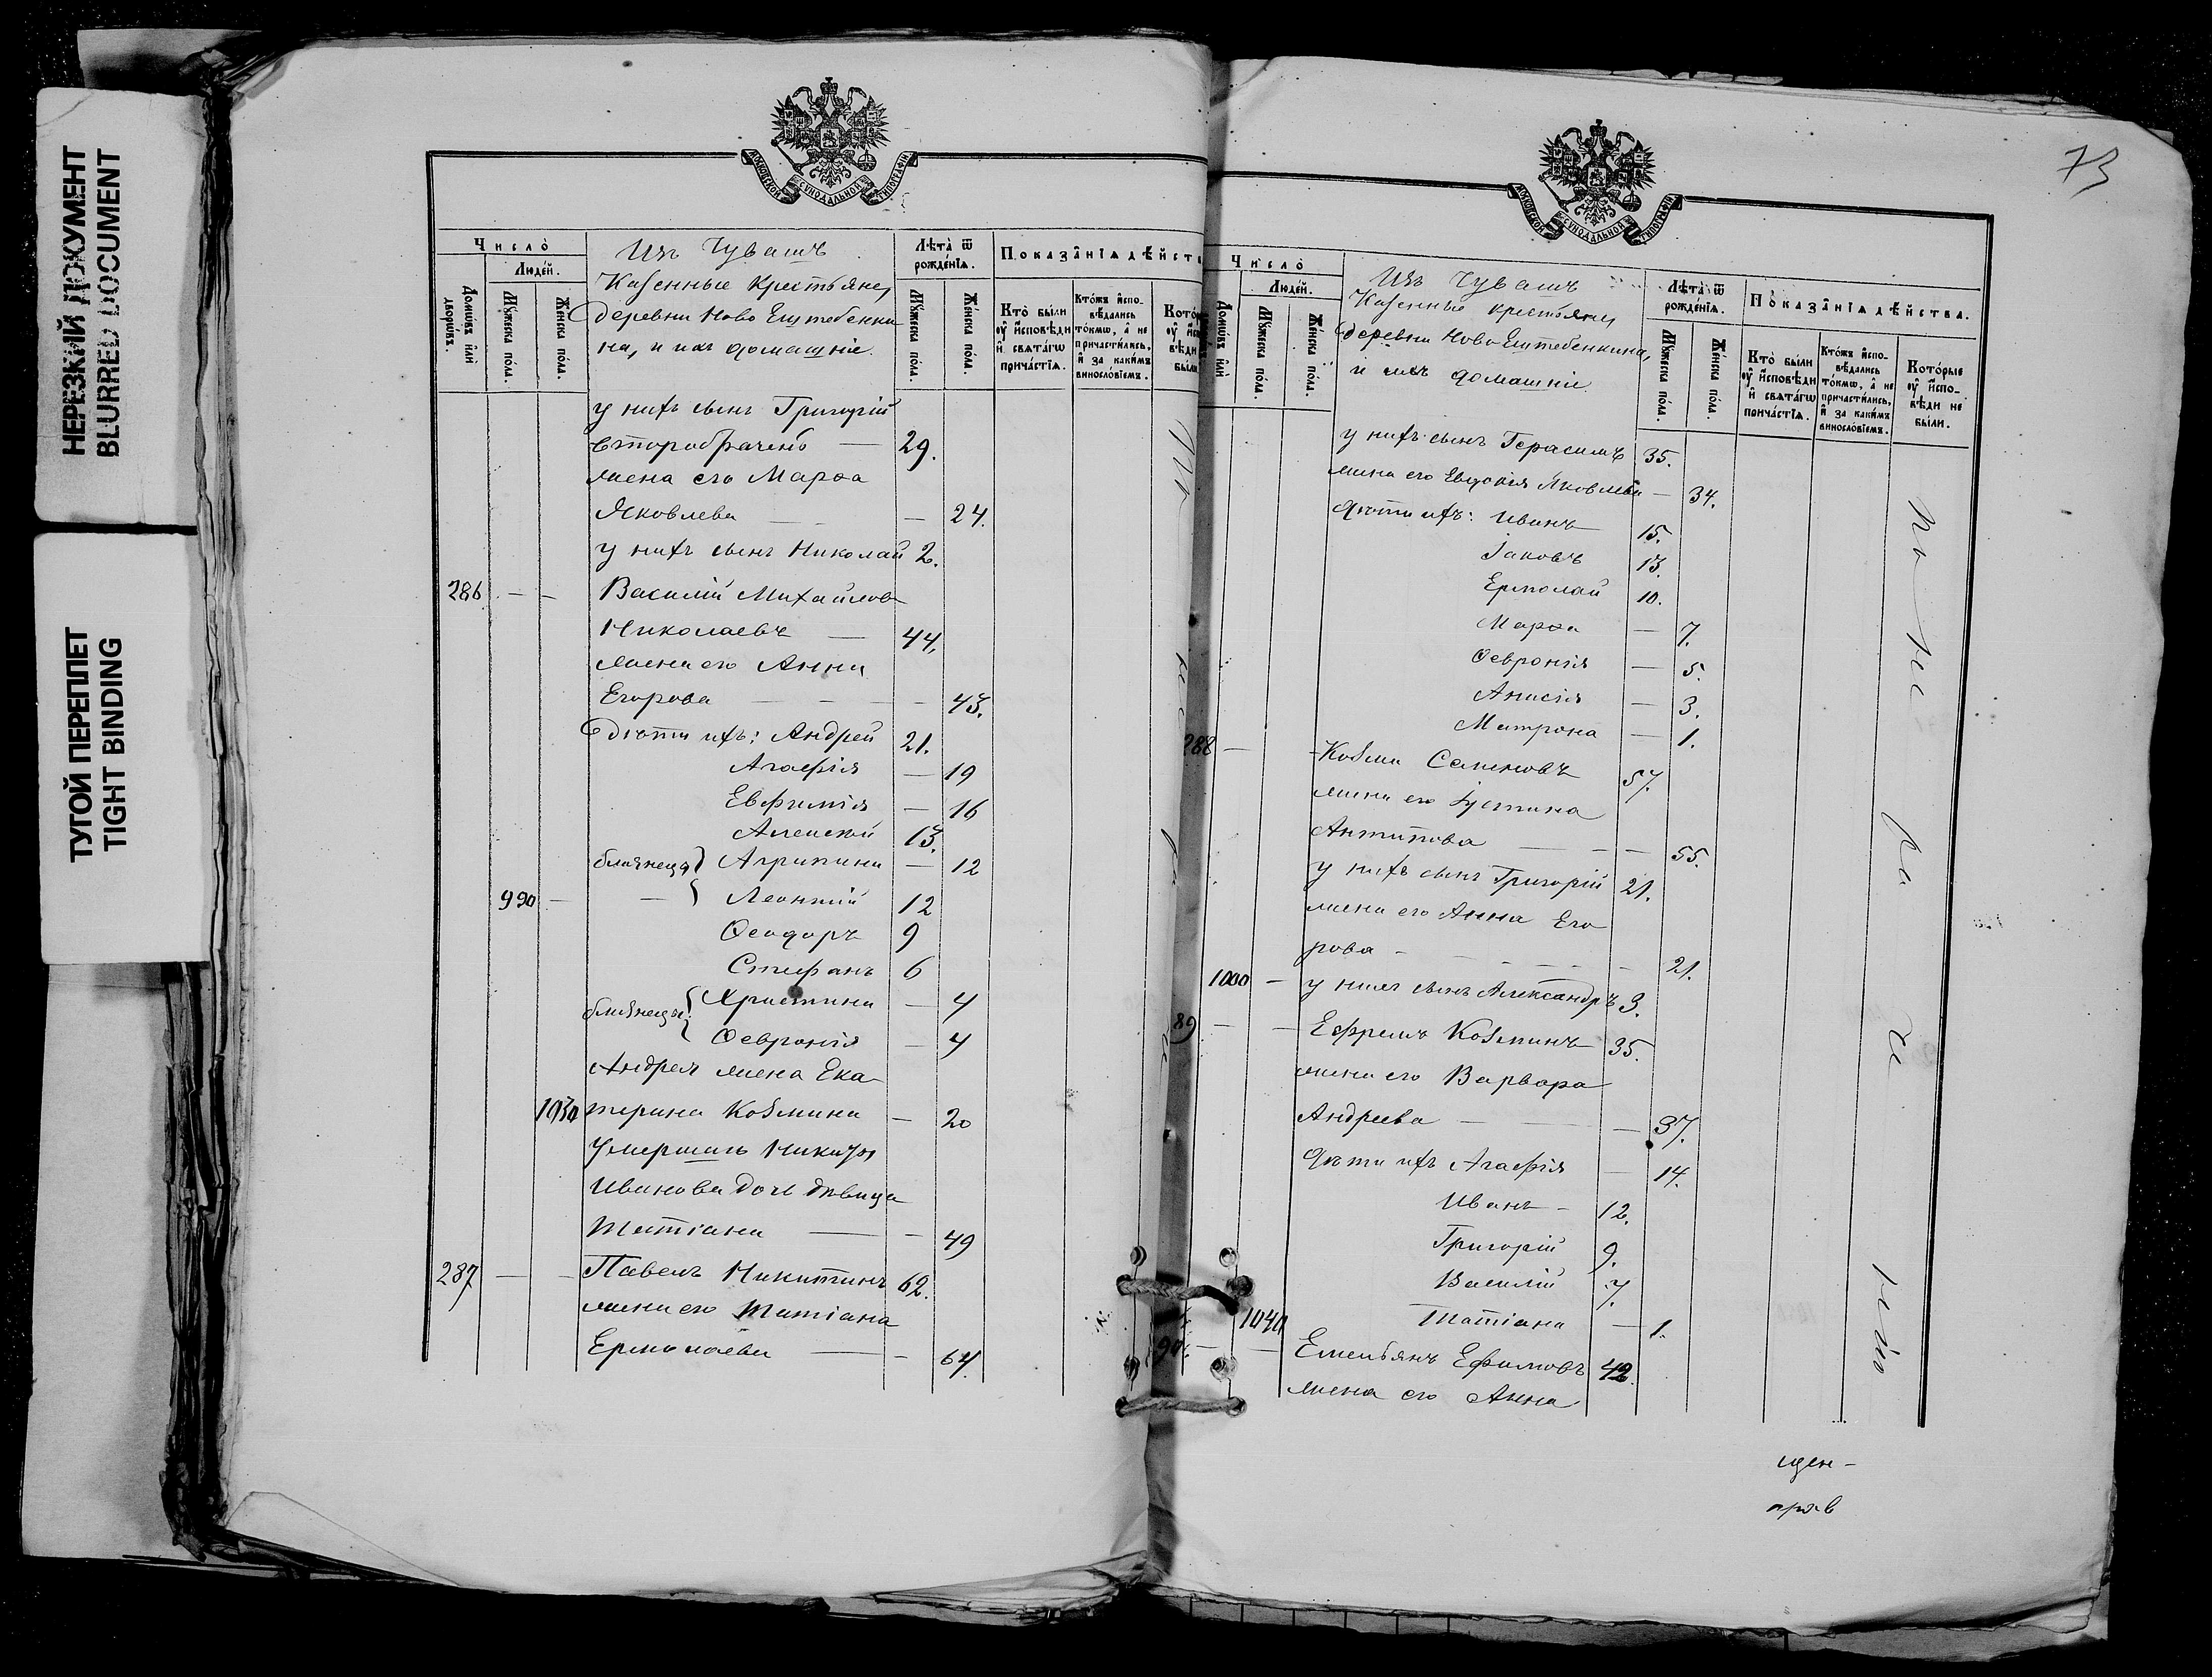 НЕРЕЗКИЙ ДОКУМЕНТ
BLURRED DOCUMENT
ТУГОЙ ПЕРЕПЛЕТ
TIGHT BINDING
МОСКОВСКОЙ СѴНОДАЛЬНОЙ ТИПОГРАФІИ
Число̀
Людей.
Домѡ́въ и҆лѝ дворѡ́въ.
Мꙋ́жеска по́ла.
Же́нска по́ла.
Изъ Чувашъ
Казенные крестьяне,
деревни Ново Ештебенки
на, и ихъ домашніе.
Лѣ́та ѿ рожде́нїѧ.
Мꙋ́жеска по́ла.
Же́нска по́ла.
Показа̑нїѧ дѣ́йств
Кто̀ бы́ли ᲂу҆ и҆́сповѣди и҆ свѧта́гѡ прича́стїѧ.
Кто́жъ и҆спо- вѣ́дались то́кмѡ, а҆ не причасти́лись, и҆ за каки́мъ винословїемъ.
у нихъ сынъ Григорій
второбраченъ — 29.
жена его Марѳа
Яковлева — — 24.
у нихъ сынъ Николай 2.
286 — — Василій Михайловъ
Николаевъ — 44.
жена его Анна
Егорова — — 43.
Дѣти ихъ: Андрей 21.
Агафія — 19
Евфимія — 16
Алексѣй 13.
близнецы Агрипина — 12
990 — — Леонтій 12
Ѳеодоръ 9
Стефанъ 6
близнецы: Христина — 4
Ѳевронія — 4
Андрея жена Ека
1030 терина Козмина — 20
Умершаго Никиты
Иванова дочь дѣвица
Татіана — — 49
287 — — Павелъ Никитинъ 62.
жена его Татіана
Ермолаева — — 64.
73
МОСКОВСКОЙ СѴНОДАЛЬНОЙ ТИПОГРАФІИ
Число̀
Людей.
Домѡ́въ и҆лѝ
Мꙋ́жеска по́ла.
Же́нска по́ла.
Изъ Чувашъ
Казенные крестьяне
деревни Ново Ештебенкина,
и ихъ домашніе
Лѣ́та ѿ рожде́нїѧ.
Мꙋ́жеска по́ла.
Же́нска по́ла.
Показа̑нїѧ дѣ́йства.
Кто̀ бы́ли ᲂу҆ и҆́сповѣди и҆ свѧта́гѡ прича́стїѧ.
Кто́жъ и҆спо- вѣ́дались то́кмѡ, а҆ не причасти́лись, и҆ за каки́мъ винословїемъ.
Кото́рые ᲂу҆ и҆спо- вѣди не бы́ли.
у нихъ сынъ Герасимъ 35.
жена его Евдокія Яковлева — 34.
Дѣти ихъ: Иванъ 15.
Іаковъ 13.
Ермолай 10.
Марѳа — 7.
Ѳевронія — 5.
Анисія — 3.
Матрона — 1.
288 — Козма Семеновъ 57.
жена его Іустина
Антипова — — 55.
у нихъ сынъ Григорій 21.
жена его Анна Его
рова — — 21.
1000 — у нихъ сынъ Александръ 3.
89 — — Ефремъ Козминъ 35.
жена его Варвара
Андреева — — 37.
Дѣти ихъ Агафія — 14.
Иванъ — 12.
Григорій 9.
Василій 7.
1040 Татіана — 1.
90 — — Емельянъ Ефимовъ 42.
жена его Анна
щен-